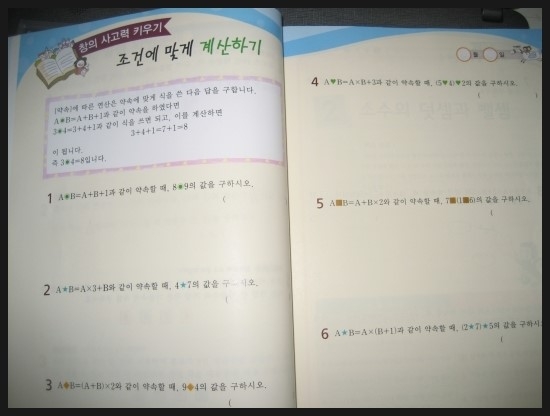 창의 사고력 키우기
조건에 맞게 계산하기
[약속]에 따른 연산은 약속에 맞게 식을 쓴 다음 답을 구합니다.
A◉B=A+B+1과 같이 약속을 하였다면
3◉4=3+4+1과 같이 식을 쓰면 되고, 이를 계산하면
3+4+1=7+1=8
이 됩니다.
즉 3◉4=8입니다.
1 A◉B=A+B+1과 같이 약속할 때, 8◉9의 값을 구하시오.
(
2 A★B=A×3+B와 같이 약속할 때, 4★7의 값을 구하시오.
(
3 A◈B=(A+B)×2와 같이 약속할 때, 9◈4의 값을 구하시오.
(
월 일
4 A♥B=A×B+3과 같이 약속할 때, (5♥4)♥2의 값을 구하시오.
(
5 A■B=A+B×2와 같이 약속할 때, 7■(1■6)의 값을 구하시오.
(
6 A★B=A×(B+1)과 같이 약속할 때, (2★7)★5의 값을 구하시
(